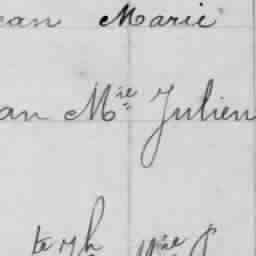 ean Marie
an Mie Julien